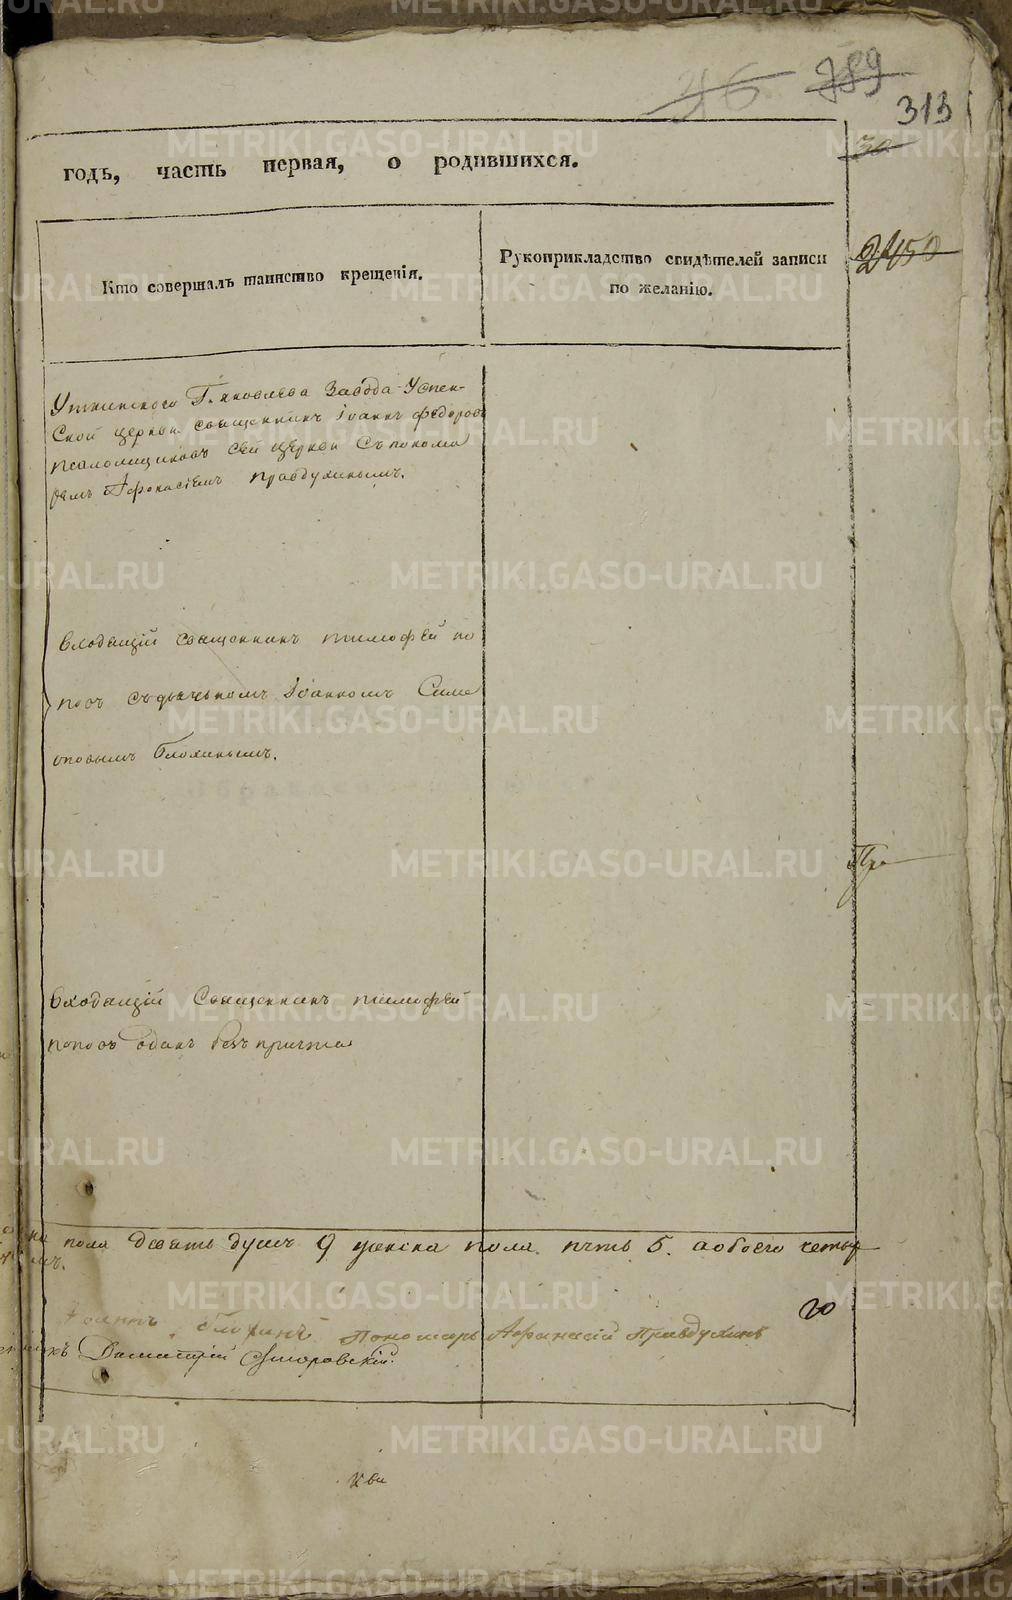 36 789
313
30
годъ, часть первая, о родившихся.
2450
Кто совершалъ таинство крещенія.
Рукоприкладство свидѣтелей записи
по желанію.
Уткинскаго Г. яковлева Завода Успен-
Ской церкви священникъ Іоаннъ федоровъ
псаломщиковъ сей церкви Съ понома
ремъ Афонасіемъ правдухинымъ.
входящій священникъ тимофей по
повъ съ дьячькомъ Іоанномъ Симе
оновымъ блохинымъ.
входящій Священникъ тимофей
поповъ Единъ безъ причта
пола девять душъ 9 женска пола пять 5. а обоего четыр
20
Іоаннъ блохинъ Пономарь Афанасій Правдухинъ
Димитрій
METRIKI.GASO-URAL.RU